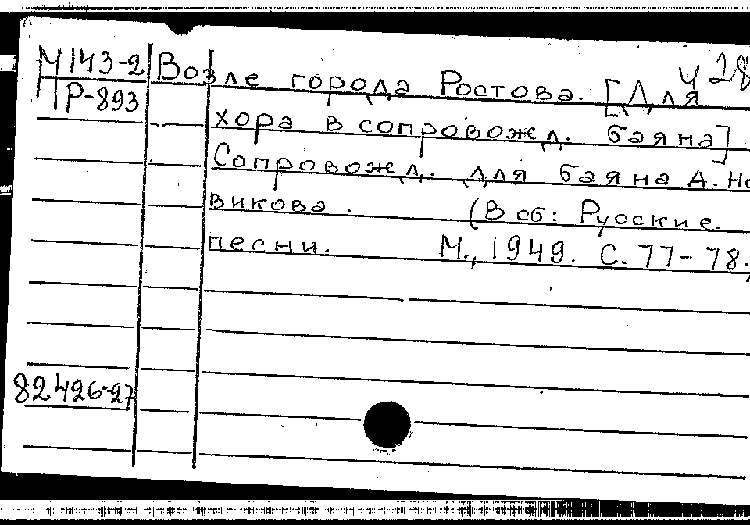 М 143-2 Возле города Ростова. [Для
Р-893 хора в сопровожд. баяна]
Сопровожд. для баяна А. Но
викова. (В сб: Русские
песни. М., 1949. С. 77-78.
82426-27